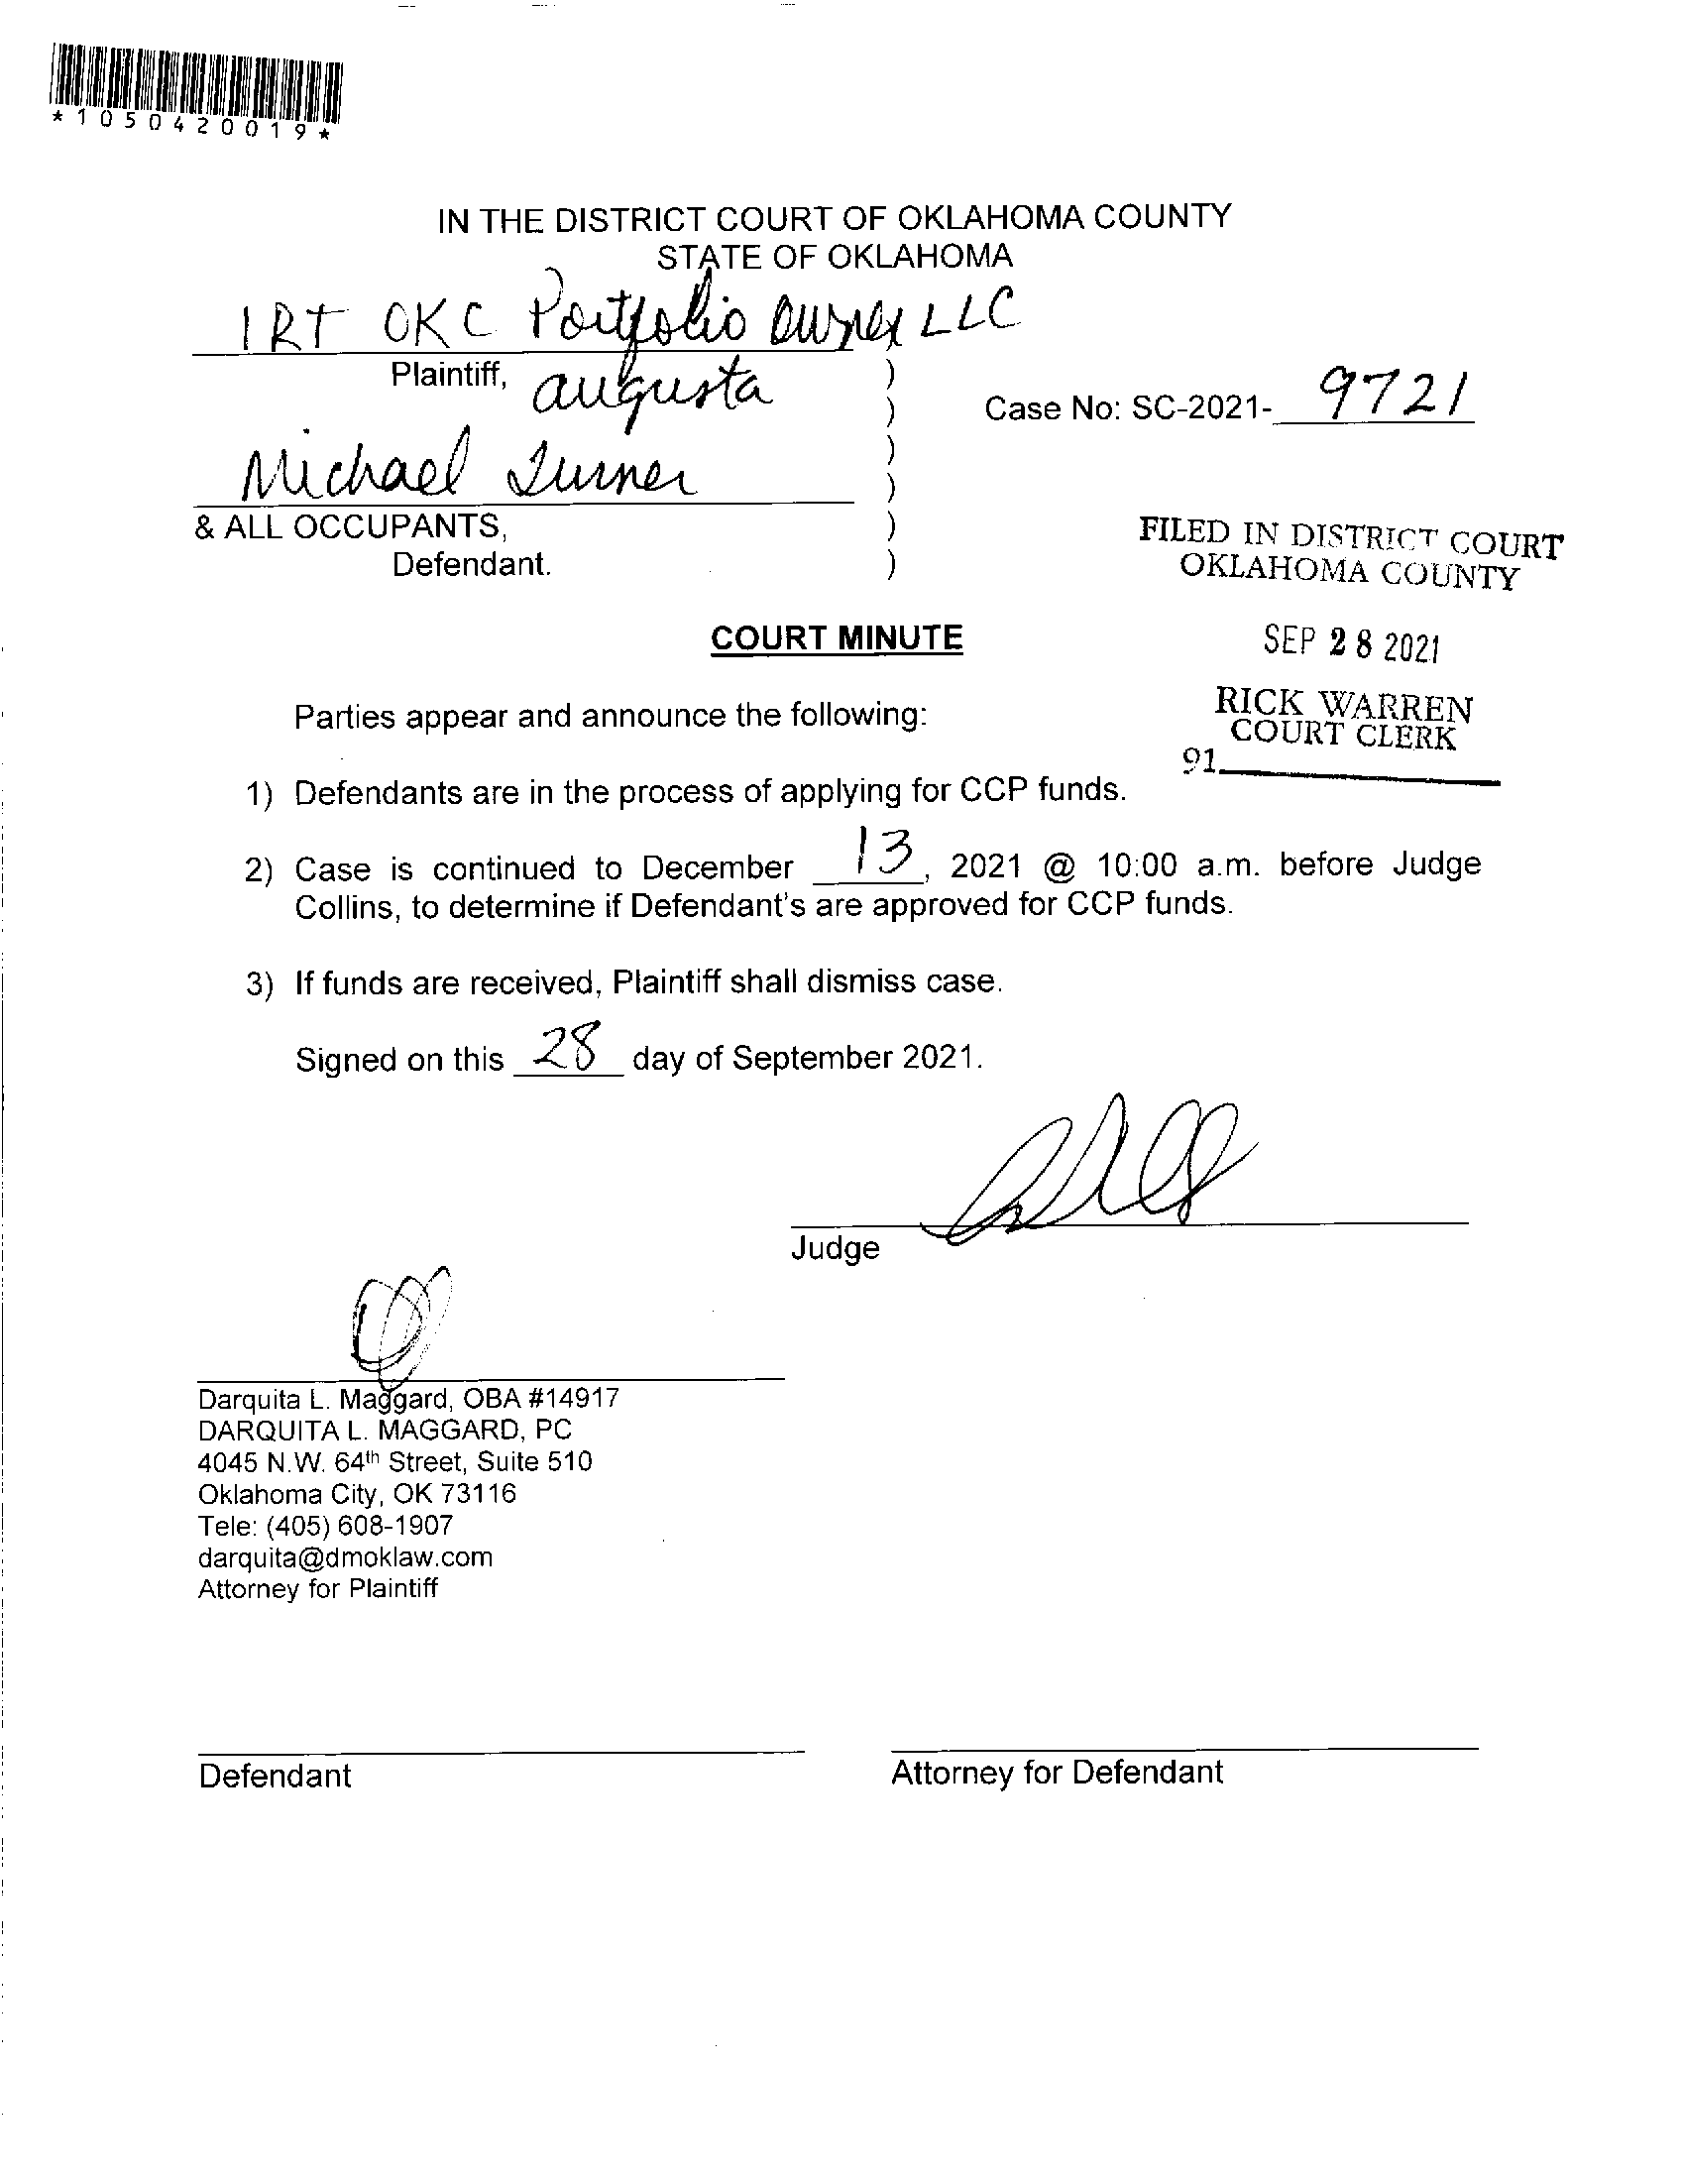 *1050420019*
IN THE DISTRICT COURT OF OKLAHOMA COUNTY
STATE OF OKLAHOMA
IRT OKC Portfolio Owner LLC
Plaintiff, augusta )
) Case No: SC-2021- 9721
)
Michael Turner )
& ALL OCCUPANTS, )
Defendant. )
FILED IN DISTRICT COURT
OKLAHOMA COUNTY
SEP 28 2021
RICK WARREN
COURT CLERK
91
COURT MINUTE
Parties appear and announce the following:
1) Defendants are in the process of applying for CCP funds.
2) Case is continued to December 13, 2021 @ 10:00 a.m. before Judge
Collins, to determine if Defendant's are approved for CCP funds.
3) If funds are received, Plaintiff shall dismiss case.
Signed on this 28 day of September 2021.
Judge
Darquita L. Maggard, OBA #14917
DARQUITA L. MAGGARD, PC
4045 N.W. 64th Street, Suite 510
Oklahoma City, OK 73116
Tele: (405) 608-1907
darquita@dmoklaw.com
Attorney for Plaintiff
Defendant
Attorney for Defendant